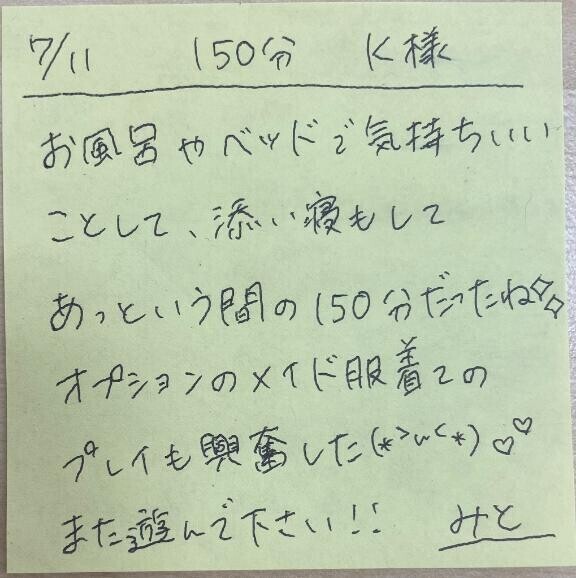 7/11 150分 K様
お風呂やベッドで気持ちいい
ことして、添い寝もして
あっという間の150分だったね✧✧
オプションのメイド服着ての
プレイも興奮した(*>ω<*)♡♡
また遊んで下さい!! みと